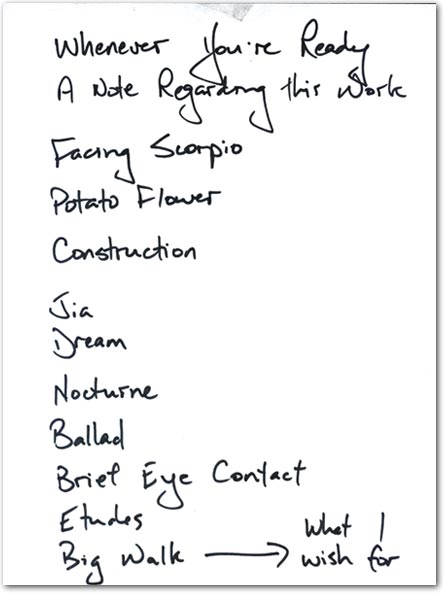 Whenever You're Ready
A Note Regarding this Work
Facing Scorpio
Potato Flower
Construction
Jia
Dream
Nocturne
Ballad
Brief Eye Contact
Etudes
Big Walk → What I
wish for